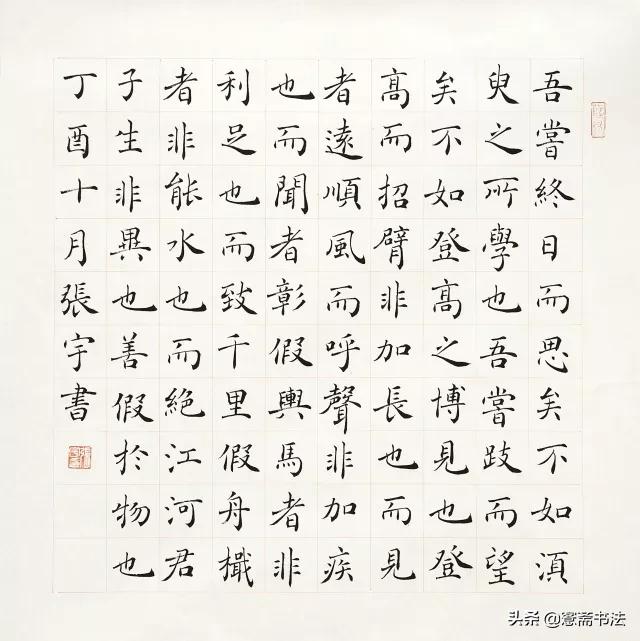 吾嘗終日而思矣不如湏
臾之所學也吾嘗跂而望
矣不如登髙之博見也登
髙而招臂非加長也而見
者遠順風而呼聲非加疾
也而聞者彰假輿馬者非
利足也而致千里假舟檝
者非能水也而絶江河君
子生非異也善假於物也
丁酉十月張宇書
头条 @愙斋书法